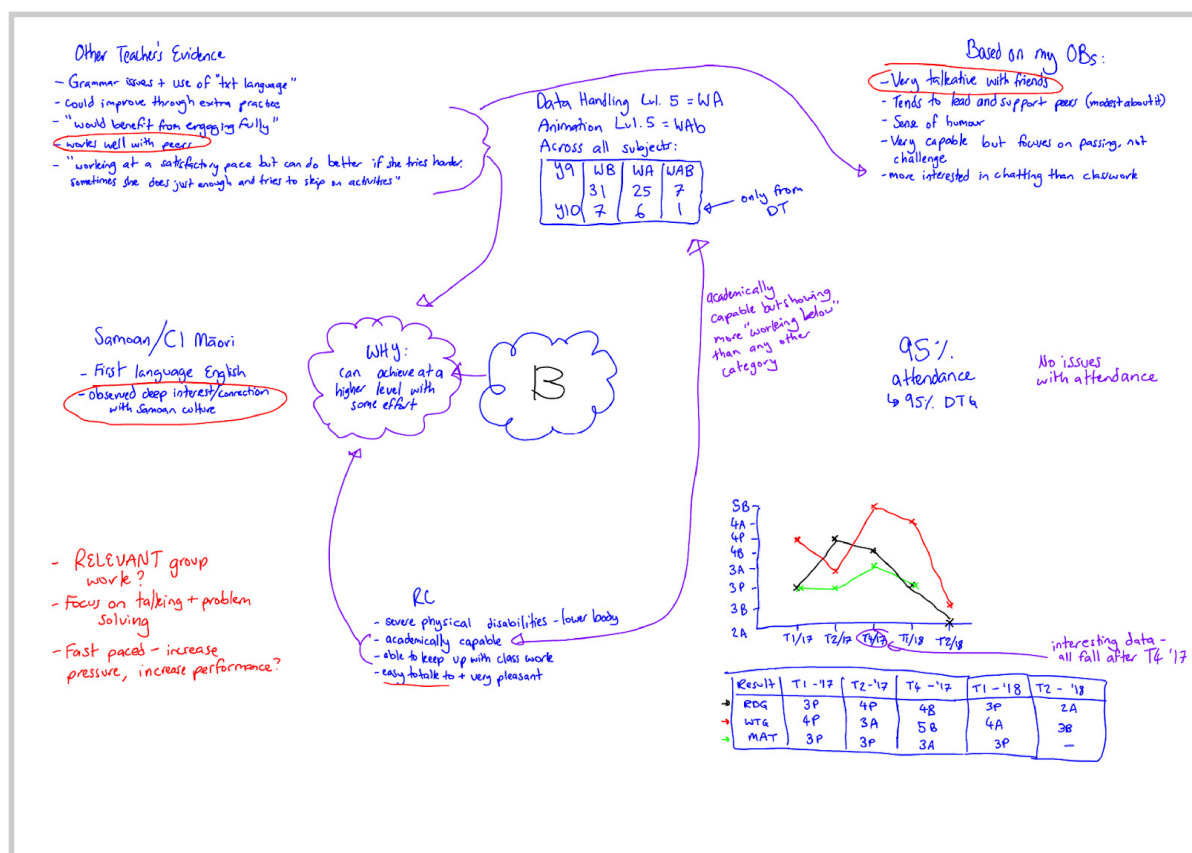 Other Teacher's Evidence
- Grammar issues + use of "txt language"
- could improve through extra practice
- "would benefit from engaging fully"
- works well with peers
- "working at a satisfactory pace but can do better if she tries harder.
sometimes she does just enough and tries to skip on activities"
Data Handling Lvl. 5 = WA
Animation Lvl. 5 = WAb
Across all subjects:
y9 WB WA WAB
31 25 7
y10 7 6 1
only from
DT
Based on my OBs:
- Very talkative with friends
- Tends to lead and support peers (modest about it)
- Sense of humour
- Very capable but focuses on passing, not
challenge
- more interested in chatting than classwork
Samoan/CI Māori
- First language English
- observed deep interest/connection
with Samoan culture
WHY:
can achieve at a
higher level with
some effort
B
academically
capable but showing
more "working below"
than any other
category
95%
attendance
↳ 95% DTG
No issues
with attendance
- RELEVANT group
work?
- Focus on talking + problem
solving
- Fast paced - increase
pressure, increase performance?
RC
- severe physical disabilities - lower body
- academically capable
- able to keep up with class work
- easy to talk to + very pleasant
5B
4A
4P
4B
3A
3P
3B
2A
T1/17 T2/17 T4/17 T1/18 T2/18
interesting data -
all fall after T4 '17
Result T1-'17 T2-'17 T4-'17 T1-'18 T2-'18
RDG 3P 4P 4B 3P 2A
WTG 4P 3A 5B 4A 3B
MAT 3P 3P 3A 3P -